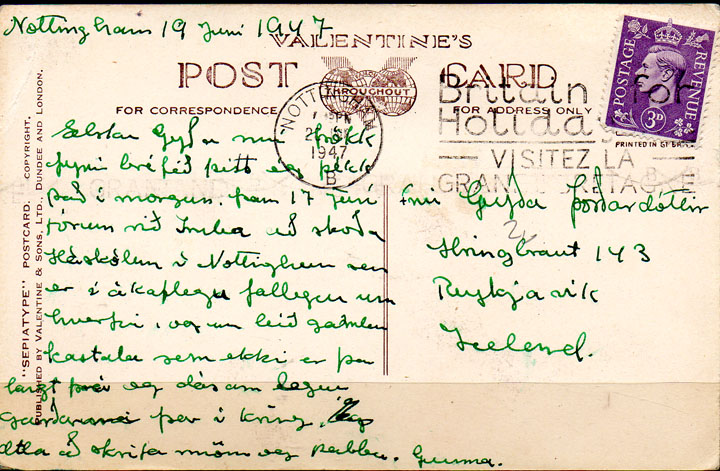 Nottingham 19 Juni 1947
VALENTINE'S
POST CARD
THROUGHOUT
FOR CORRESPONDENCE
FOR ADDRESS ONLY
NOTTINGHAM
1947
B
Britain for
Holidays
VISITEZ LA
GRANDE BRETAGNE
POSTAGE REVENUE
3D
PRINTED IN GT. BRITAIN
"SEPIATYPE" POSTCARD. COPYRIGHT.
PUBLISHED BY VALENTINE & SONS, LTD., DUNDEE AND LONDON.
Elskar Gyfa mín þakk
fyrir bréfið þitt eg fékk
það í morgun. þann 17 Juní
fórum við Imba að skoða
Háskólann í Nottingham sem
er í ákaflega fallegu um
hverfi, og um leið gamlan
kastala sem ekki er þar
langt frá og dásamlegur
Garðar þar í kring.
ætla að skrifa mömu og pabba. Gunna.
Frú Gyða Þórðardóttir
Hringbraut 143
Reykjavik
Iceland.